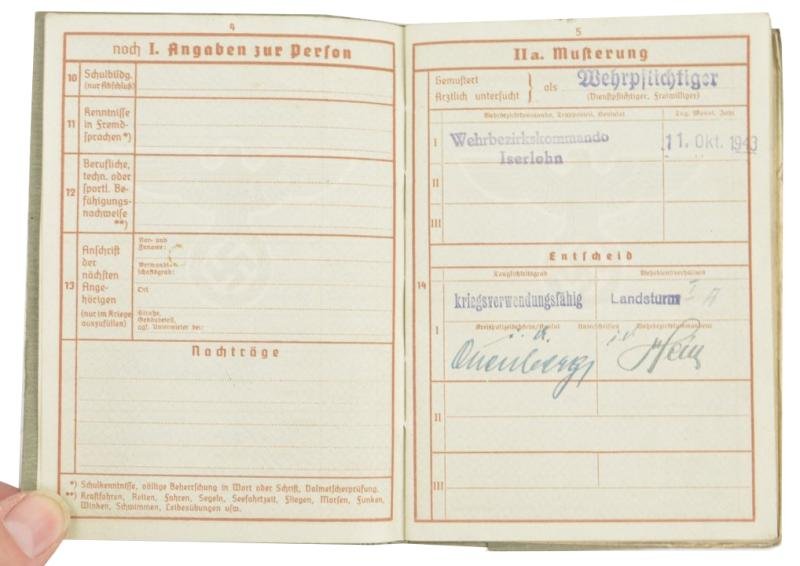 4
noch I. Angaben zur Person
10 Schulbildg.
(nur Abschluß)
11 Kenntnisse
in Fremd-
sprachen *)
12 Berufliche,
techn. oder
sportl. Be-
fähigungs-
nachweise
**)
13 Anschrift
der
nächsten
Ange-
hörigen
(nur im Kriege
auszufüllen)
Vor- und
Zuname:
Verwandt-
schaftsgrad:
Ort
Straße,
Gebäudeteil,
ggf. Untermieter bei:
Nachträge
*) Schulkenntnisse, völlige Beherrschung in Wort oder Schrift, Dolmetscherprüfung.
**) Kraftfahren, Reiten, Fahren, Segeln, Seefahrtzeit, Fliegen, Morsen, Funken,
Winken, Schwimmen, Leibesübungen usw.
5
II a. Musterung
Gemustert
Ärztlich untersucht
als Wehrpflichtiger
(Dienstpflichtiger, Freiwilliger)
Wehrbezirkskommando, Truppenteil,
Tag, Monat, Jahr
I Wehrbezirkskommando
Iserlohn
11. Okt. 1943
II
III
Entscheid
14
Tauglichkeitsgrad Wehrdienstverhältnis
kriegsverwendungsfähig Landsturm I A
I
Unterschriften
i. V.
II
III